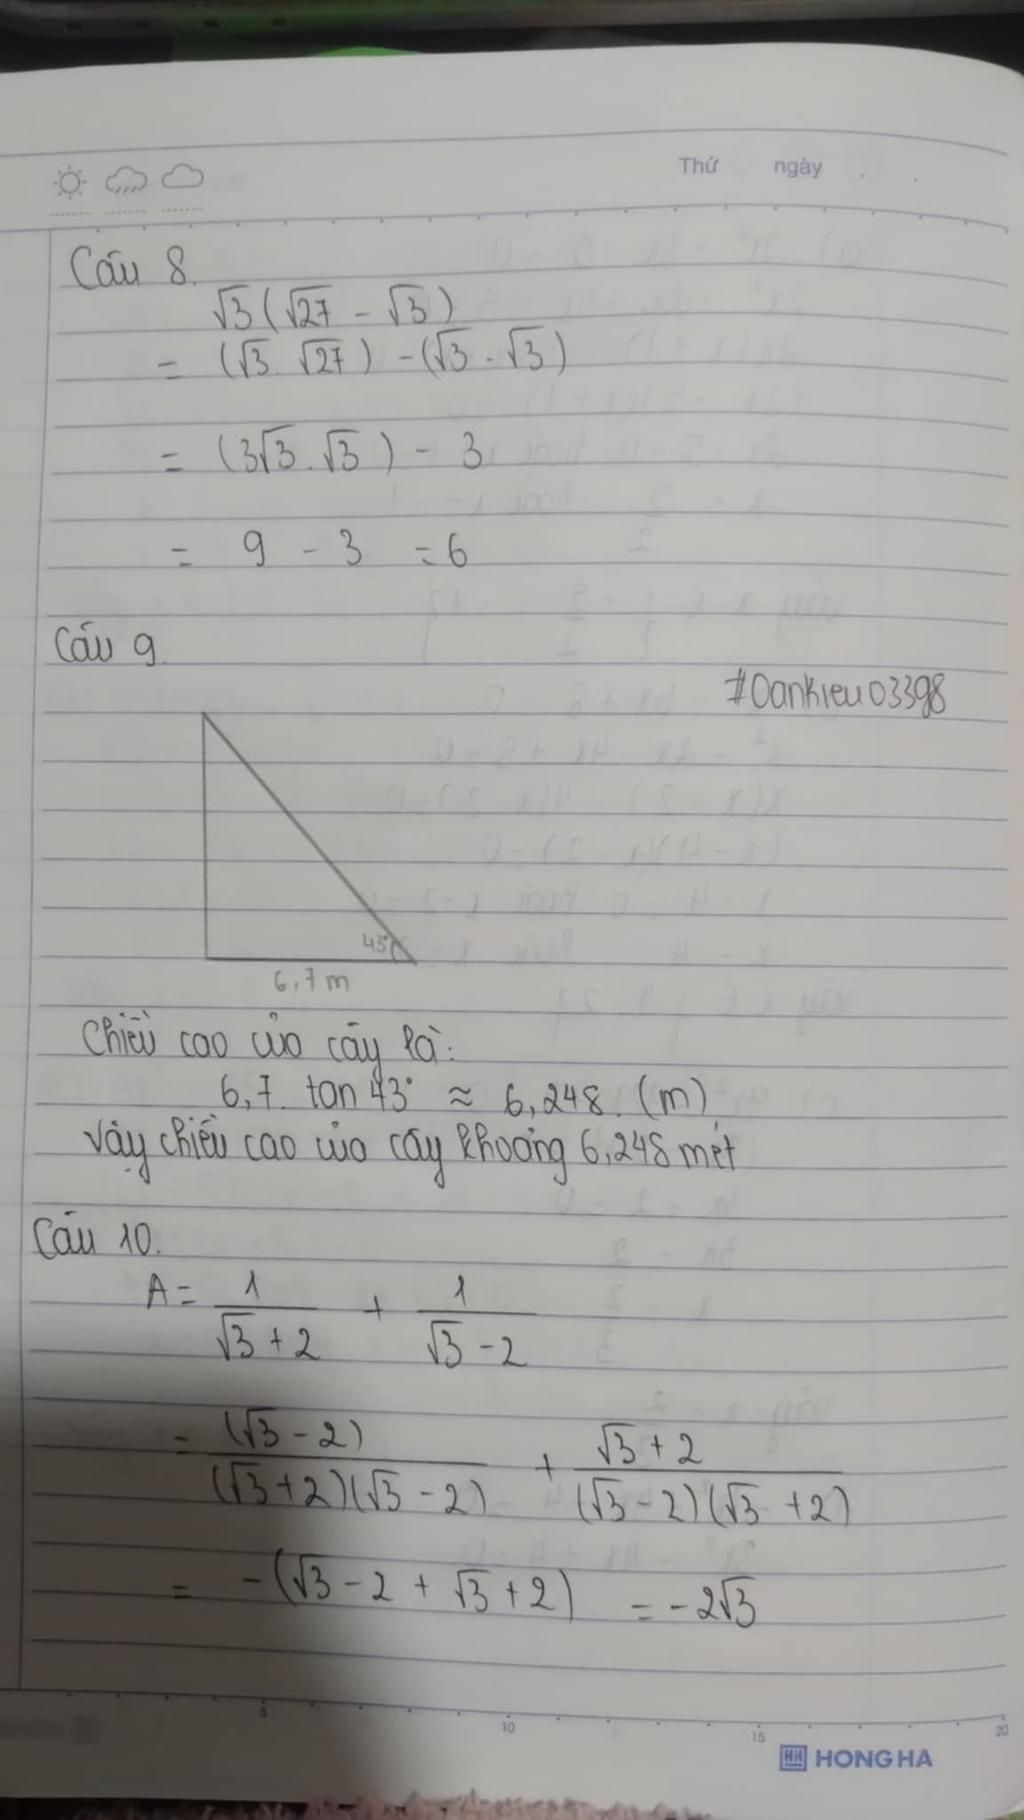 Thứ ngày
Câu 8.
√3(√27 - √3)
= (√3 . √27) - (√3 . √3)
= (3√3 . √3) - 3
= 9 - 3 = 6
Câu 9
#Oankieu03398
43°
6,7 m
Chiều cao của cây là:
6,7. tan 43° ≈ 6,248. (m)
Vậy chiều cao của cây khoảng 6,248 mét
Câu 10.
A = 1/(√3 + 2) + 1/(√3 - 2)
= (√3 - 2)/((√3 + 2)(√3 - 2)) + (√3 + 2)/((√3 - 2)(√3 + 2))
= -(√3 - 2 + √3 + 2) = -2√3
5 10 15 20
HH HONG HA